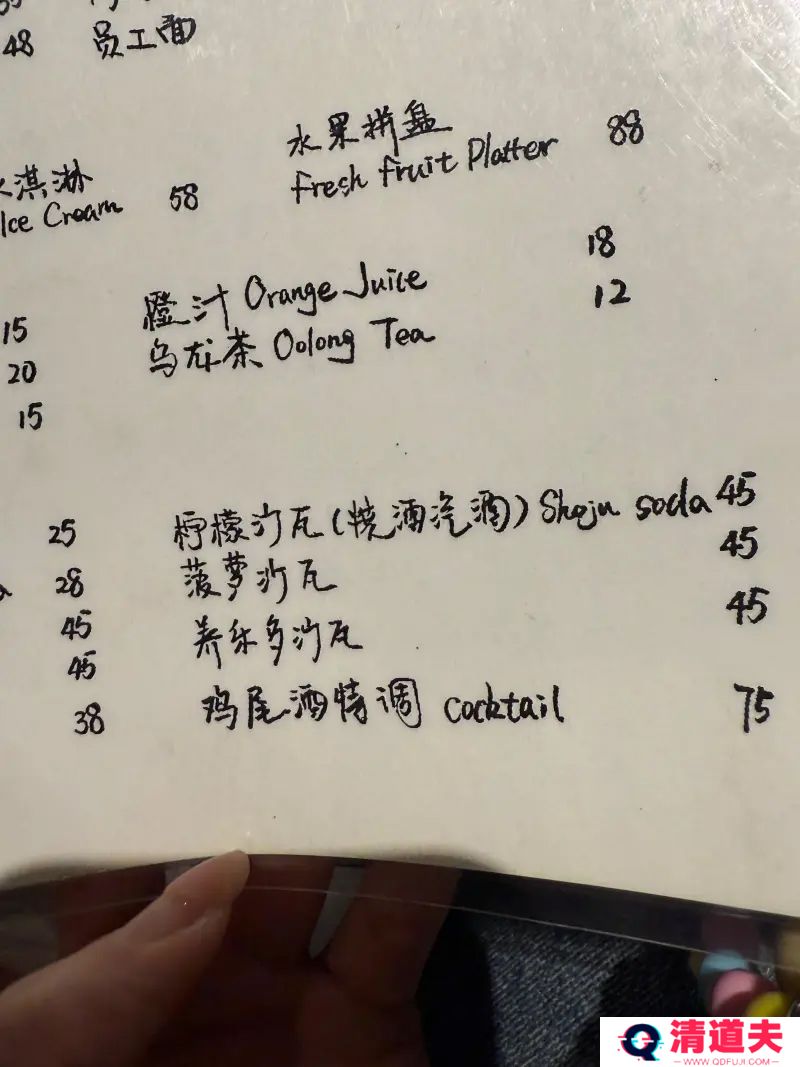 48 员工面
水果拼盘 88
Fresh fruit Platter
淇淋 58
Ice Cream
橙汁 Orange Juice 18
乌龙茶 Oolong Tea 12
15
20
15
25 柠檬沙瓦(烧酒汽酒) Shoju soda 45
28 菠萝沙瓦 45
45 养乐多沙瓦 45
45
38 鸡尾酒特调 cocktail 75
清道夫
WWW.QDFUJI.COM